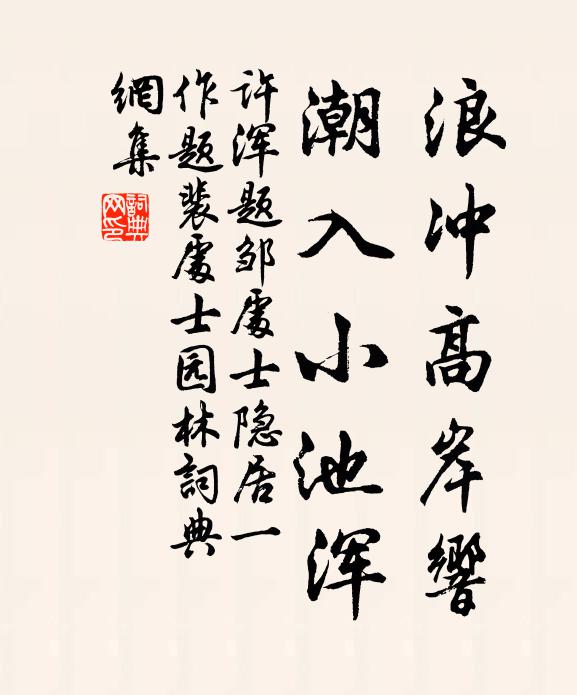 浪冲高岸響
潮入小池浑
许浑题邹處士隐居一
作题裴處士园林詞典
網集
詞典
网印